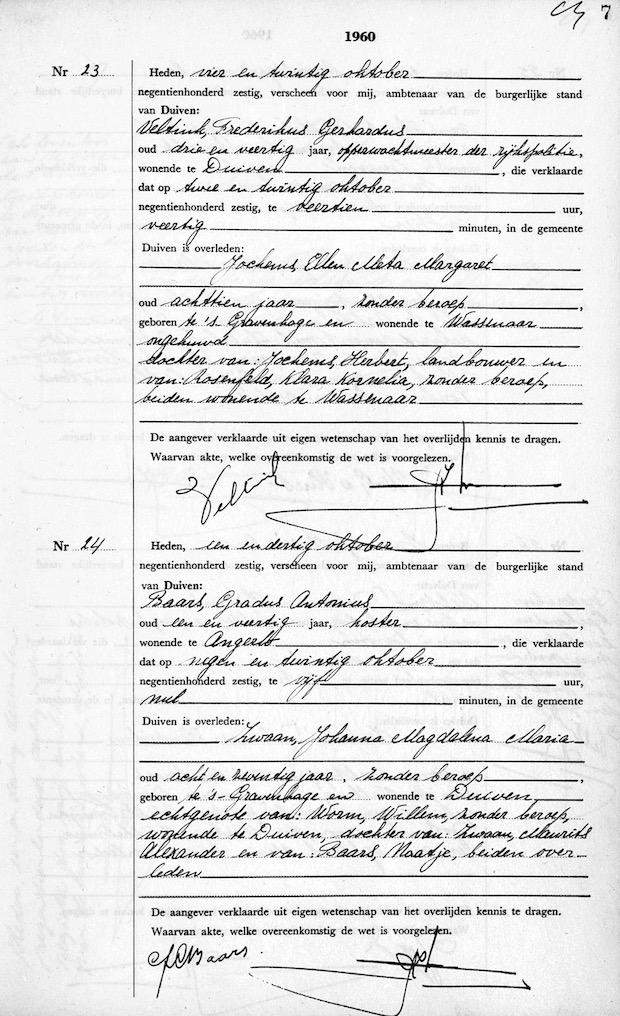 7
1960
Nr 23 Heden, vier en twintig oktober
negentienhonderd zestig, verscheen voor mij, ambtenaar van de burgerlijke stand
van Duiven:
Veltink, Frederikus Gerhardus
oud drie en veertig jaar, opperwachtmeester der rijkspolitie,
wonende te Duiven, die verklaarde
dat op twee en twintig oktober
negentienhonderd zestig, te veertien uur,
veertig minuten, in de gemeente
Duiven is overleden:
Jochems, Ellen Meta Margaret
oud achttien jaar, zonder beroep,
geboren te 's Gravenhage en wonende te Wassenaar
ongehuwd
dochter van: Jochems, Herbert, landbouwer en
van: Rosenfeld, Klara Kornelia, zonder beroep,
beiden wonende te Wassenaar
De aangever verklaarde uit eigen wetenschap van het overlijden kennis te dragen.
Waarvan akte, welke overeenkomstig de wet is voorgelezen.
Veltink
Nr 24 Heden, een en dertig oktober
negentienhonderd zestig, verscheen voor mij, ambtenaar van de burgerlijke stand
van Duiven:
Baars, Gradus Antonius
oud een en veertig jaar, koster,
wonende te Angerlo, die verklaarde
dat op negen en twintig oktober
negentienhonderd zestig, te vijf uur,
nul minuten, in de gemeente
Duiven is overleden:
Zwaan, Johanna Magdalena Maria
oud acht en zeventig jaar, zonder beroep,
geboren te 's-Gravenhage en wonende te Duiven
echtgenote van: Worm, Willem, zonder beroep,
wonende te Duiven, dochter van: Zwaan, Maurits
Alexander en van: Baars, Naatje, beiden over-
leden
De aangever verklaarde uit eigen wetenschap van het overlijden kennis te dragen.
Waarvan akte, welke overeenkomstig de wet is voorgelezen.
Baars